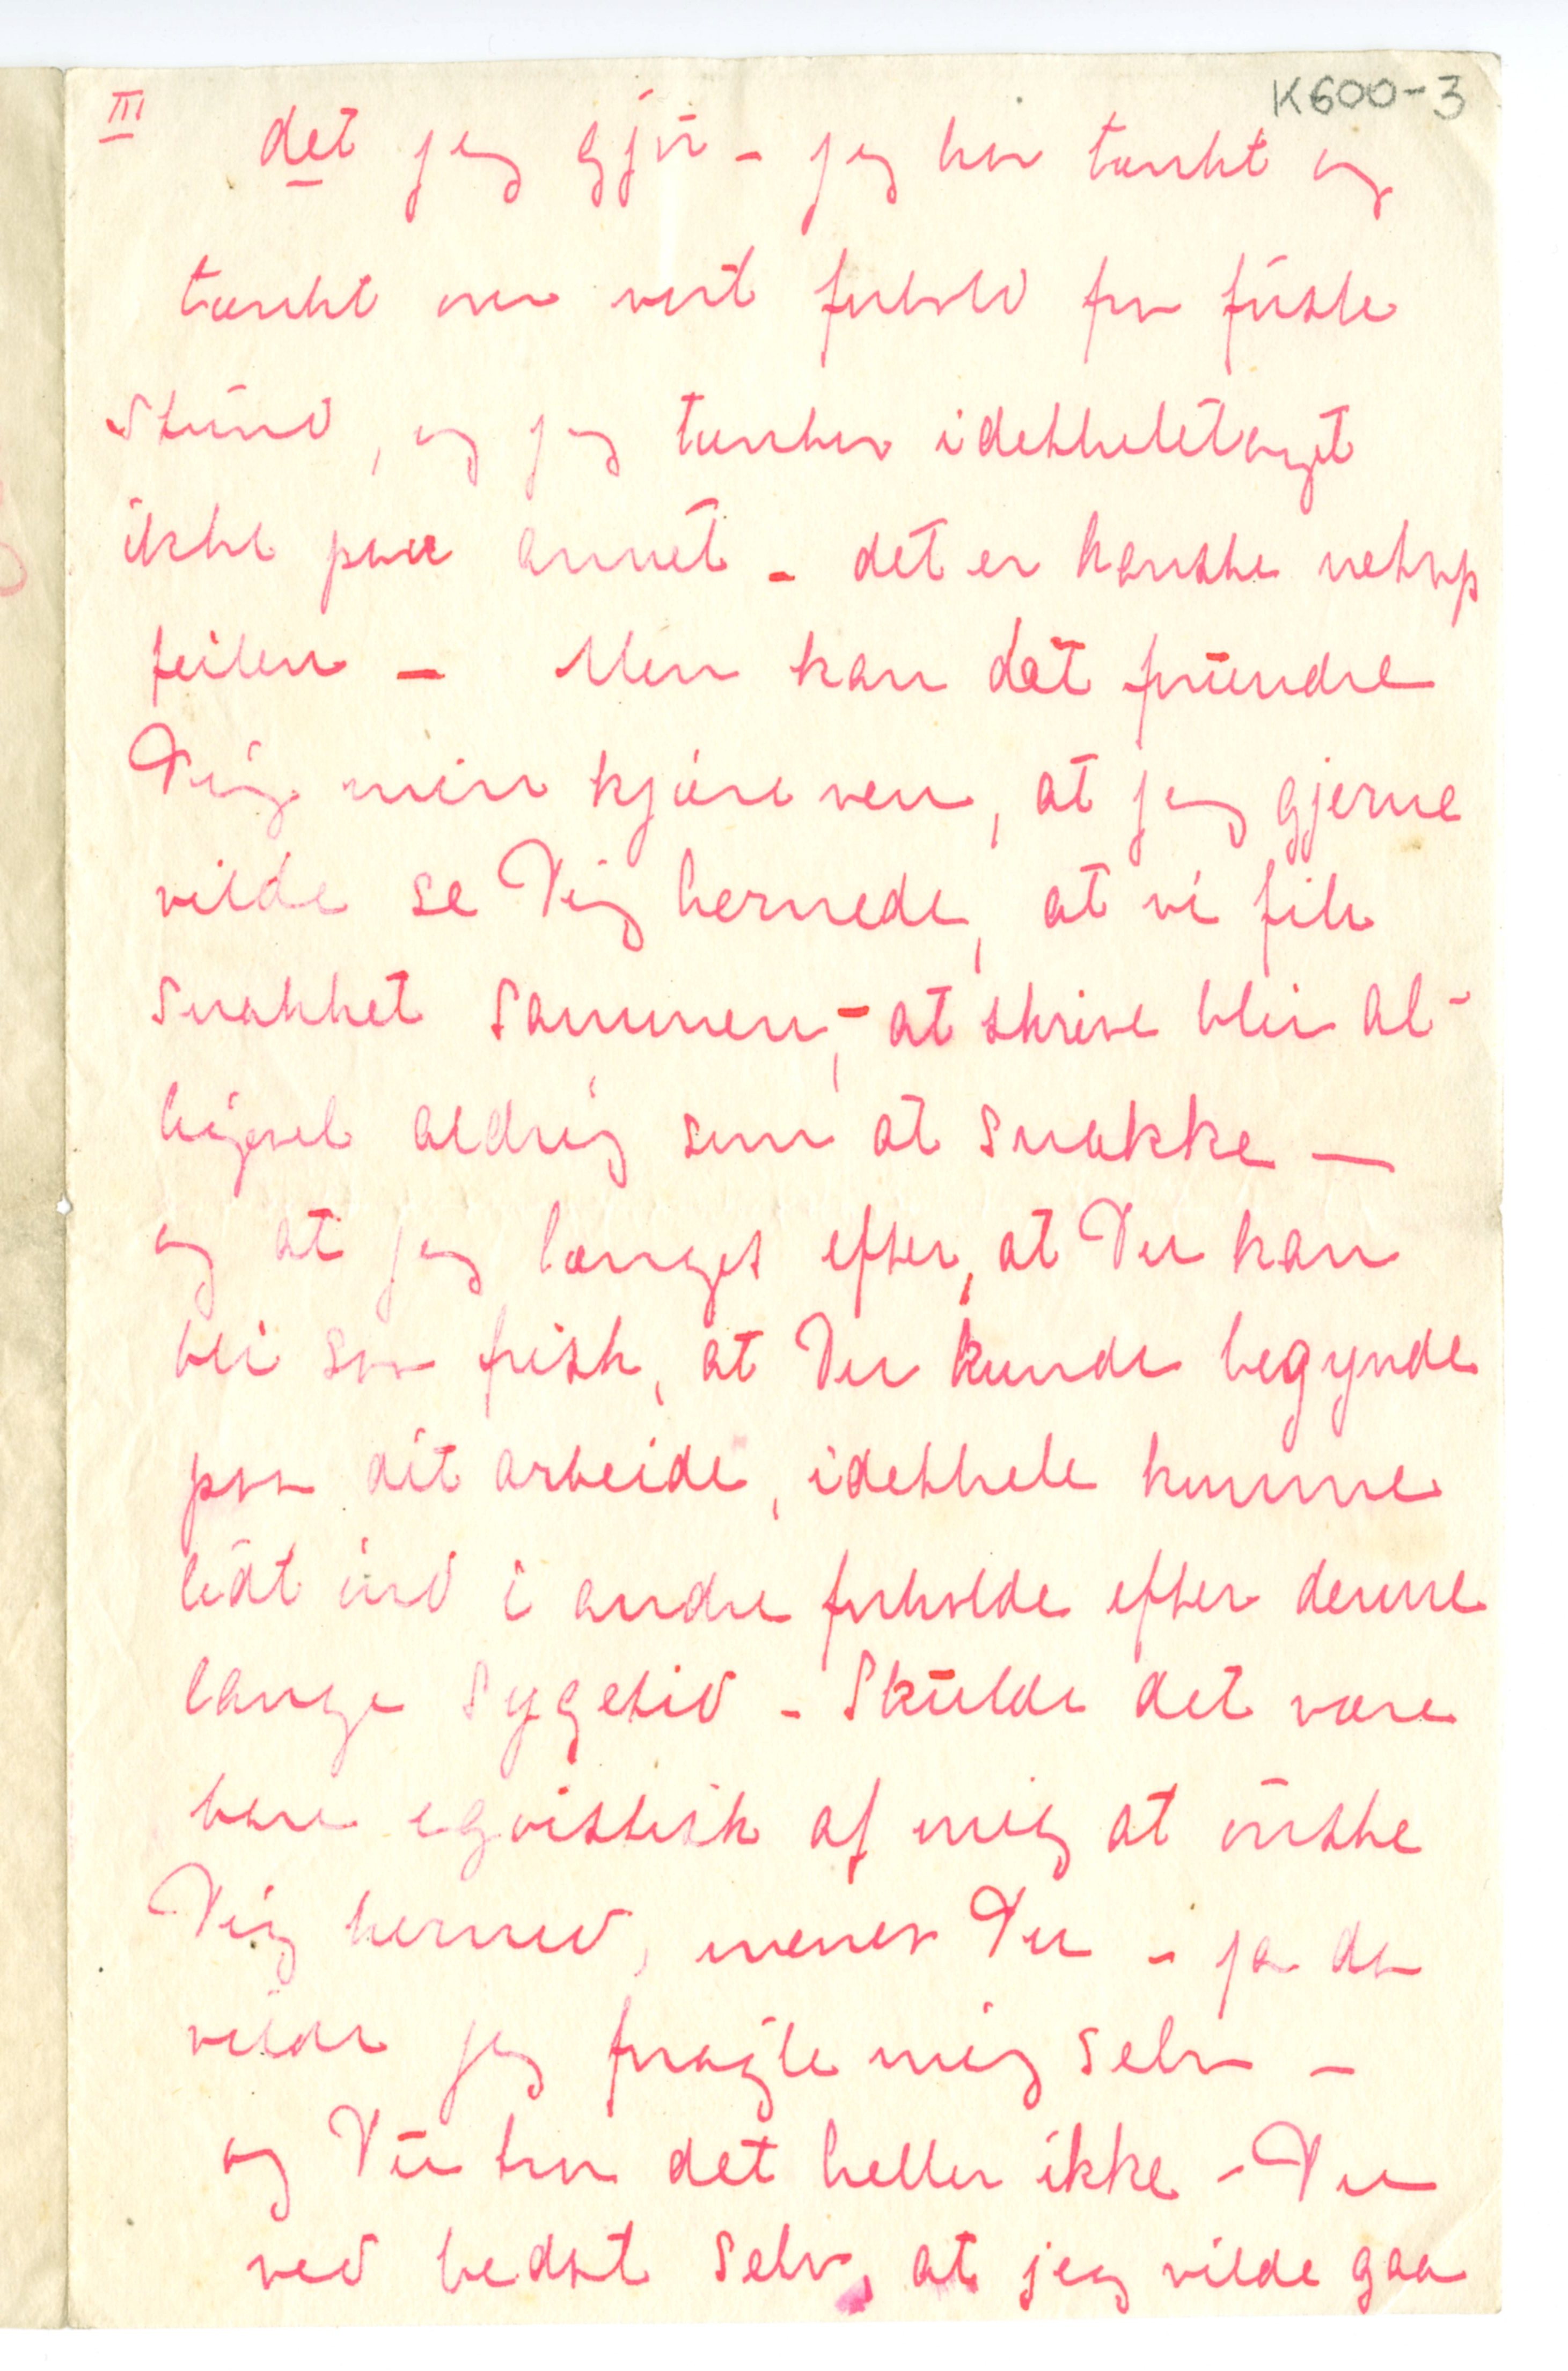 K600-3
III
det jeg gjør - jeg har tænkt og
tænkt over vort forhold fra første
stund, og jeg tænker idethheletaget
ikke paa annet - det er kanske netop
feilen - Men kan det forundre
Dig min kjære ven, at jeg gjerne
vilde se Dig hernede, at vi fik
snakket sammen, - at skrive blir al-
ligevel aldrig som at snakke —
og at jeg længes efter, at Du kan
bli saa frisk, at Du kunde begynde
paa dit arbeide, idethele komme
lidt ind i andre forholde efter denne
lange sygetid - Skulde det være
bare egoistisk af mig at ønske
Dig herned, mener Du - ja da
vilde jeg foragte mig selv -
og Du tror det heller ikke - Du
ved bedst selv, at jeg vilde gaa